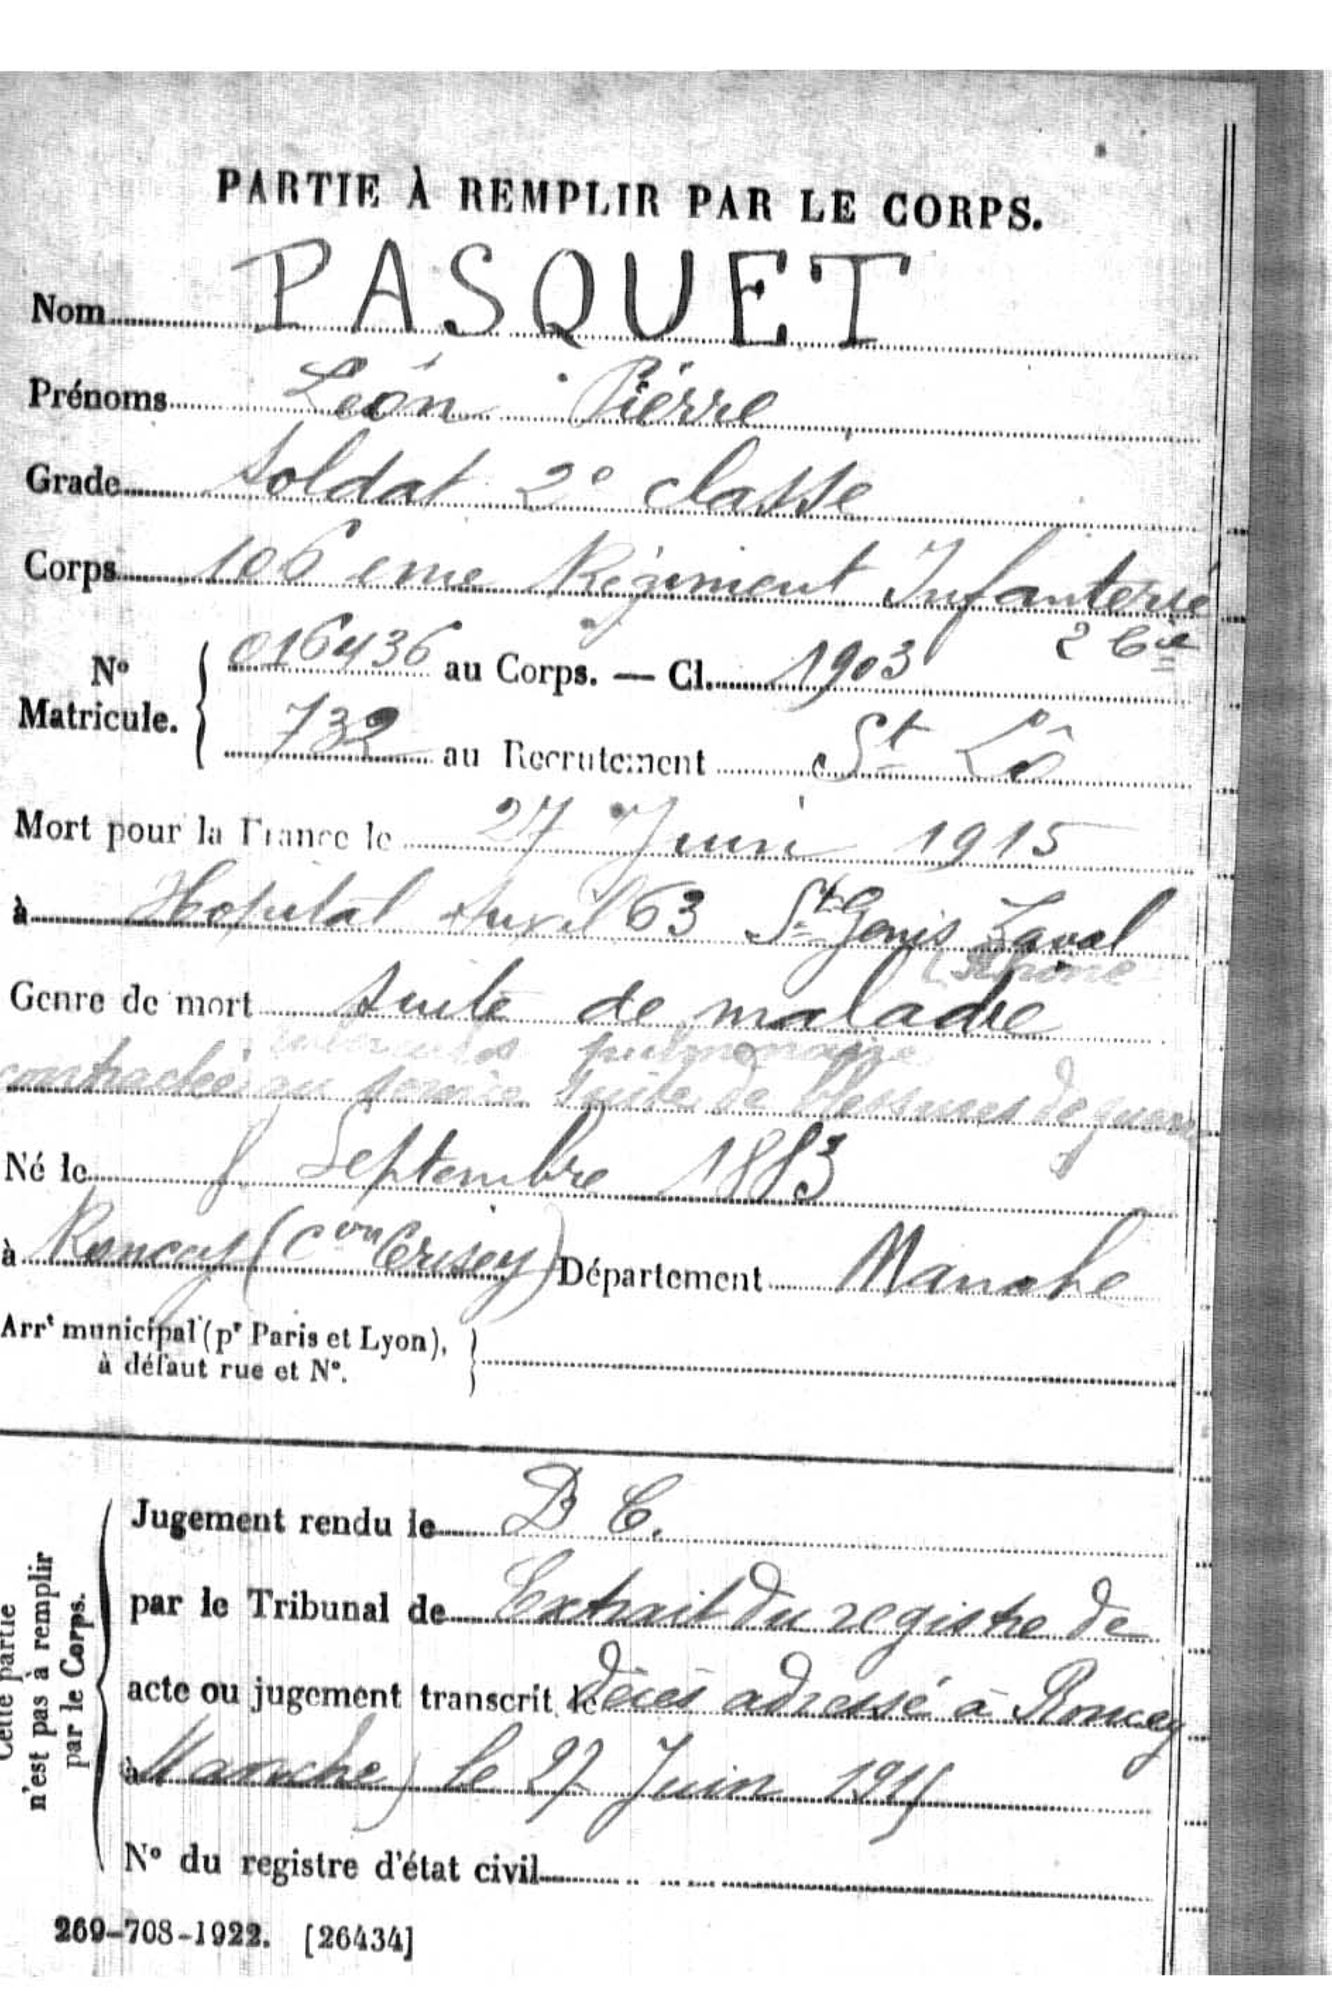 PARTIE À REMPLIR PAR LE CORPS.
Nom PASQUET
Prénoms Léon Pierre
Grade Soldat 2e classe
Corps 106 eme Régiment Infanterie
2 Cie
No Matricule. { 016436 au Corps. — Cl. 1903
732 au Recrutement St Lô
Mort pour la France le 27 Juin 1915
à Hopital 63 St Genis Laval
(Rhône
Genre de mort suite de maladie
pulmonaire
contractée au service suite de blessures de guerre
Né le 8 Septembre 1883
à Roncey (Con Cerisey) Département Manche
Arrt municipal (pr Paris et Lyon),
à défaut rue et No.
Cette partie
n'est pas à remplir
par le Corps.
Jugement rendu le D C.
par le Tribunal de Extrait du registre de
acte ou jugement transcrit le décès adressé à Roncey
à Manche) le 27 Juin 1915
No du registre d'état civil
269-708-1922. [26434]